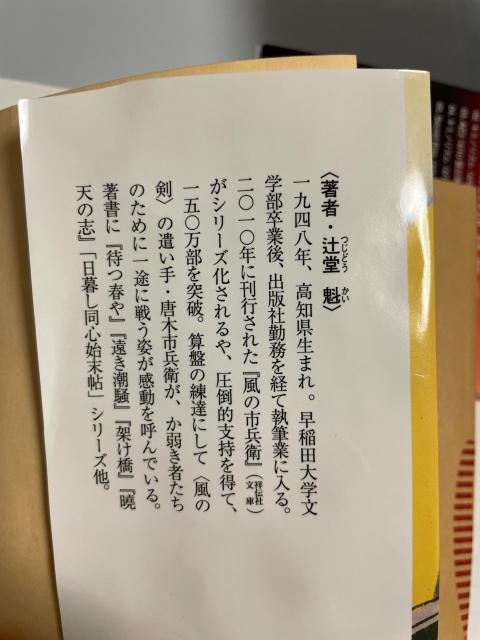 〈著者・辻堂 魁〉
つじどう かい
一九四八年、高知県生まれ。早稲田大学文
学部卒業後、出版社勤務を経て執筆業に入る。
二〇一〇年に刊行された『風の市兵衛』(祥伝社文庫)
がシリーズ化されるや、圧倒的支持を得て、
一五〇万部を突破。算盤の練達にして〈風の
剣〉の遣い手・唐木市兵衛が、か弱き者たち
のために一途に戦う姿が感動を呼んでいる。
著書に『待つ春や』『遠き潮騒』『架け橋』『曉
天の志』「日暮し同心始末帖」シリーズ他。